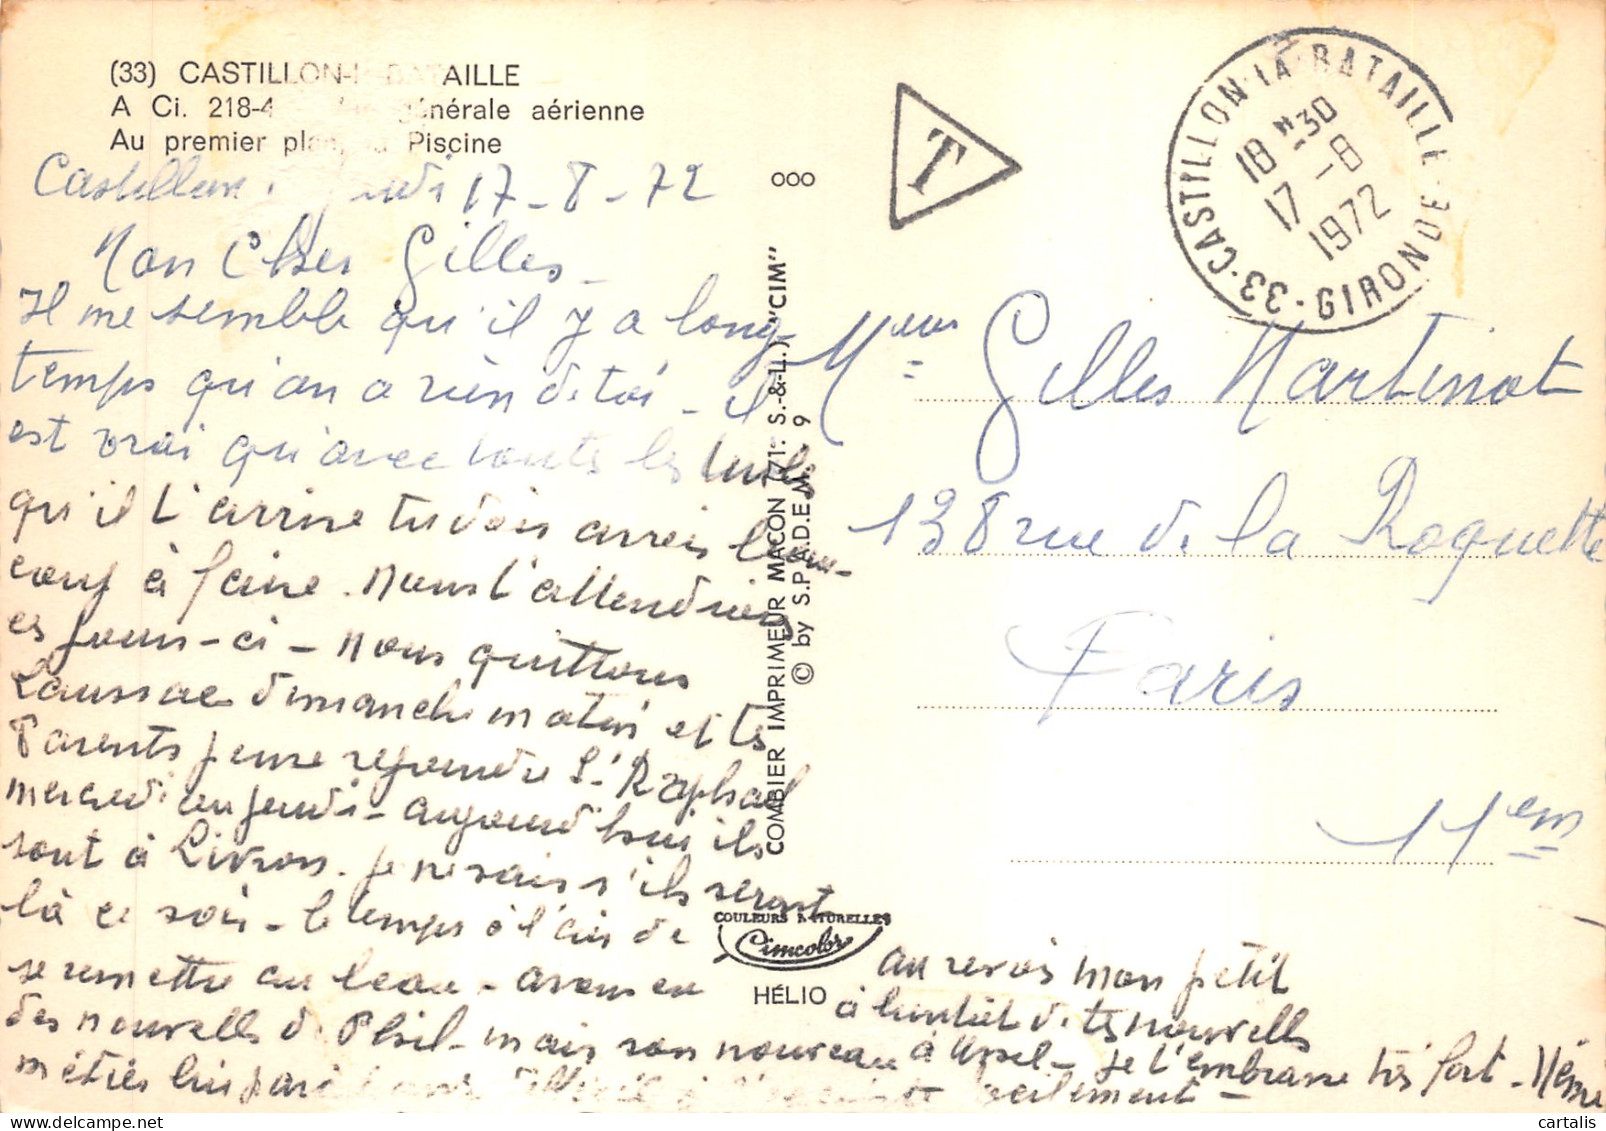 (33) CASTILLON- BATAILLE
A Ci. 218-4 générale aérienne
Au premier plan, la Piscine
Castillon. jeudi 17-8-72
Mon Cher Gilles-
Il me semble qu'il y a long-
temps qu'on a rien de toi - il
est vrai qu'avec toutes les tuiles
qu'il t'arrive tu dois avoir beau-
coup à faire. Nous t'attendrions
ces jours-ci - nous quittons
Laussac dimanche matin et tes
Parents pense rejoindre St Raphael
mercredi ou jeudi - aujourd'hui ils
sont à Livron. je ne sais s'ils seront
là ce soir - le temps à l'air de
se remettre au beau - avons eu
des nouvelles de Phil - mais son nouveau
métier lui
facilement -
au revoir mon petit
à bientôt de tes nouvelles
à Ussel - je t'embrasse très fort - Mémé
COMBIER IMPRIMEUR MACON (71 S.-&-L.) "CIM"
© by S.P.A.D.E.M. 9
COULEURS NATURELLES
Cimcolor
HÉLIO
ooo
T
CASTILLON-LA-BATAILLE
18 H 30
17 -8
1972
33 - GIRONDE
Gilles Martinot
138 rue de la Roquette
Paris
11 em
cartalis